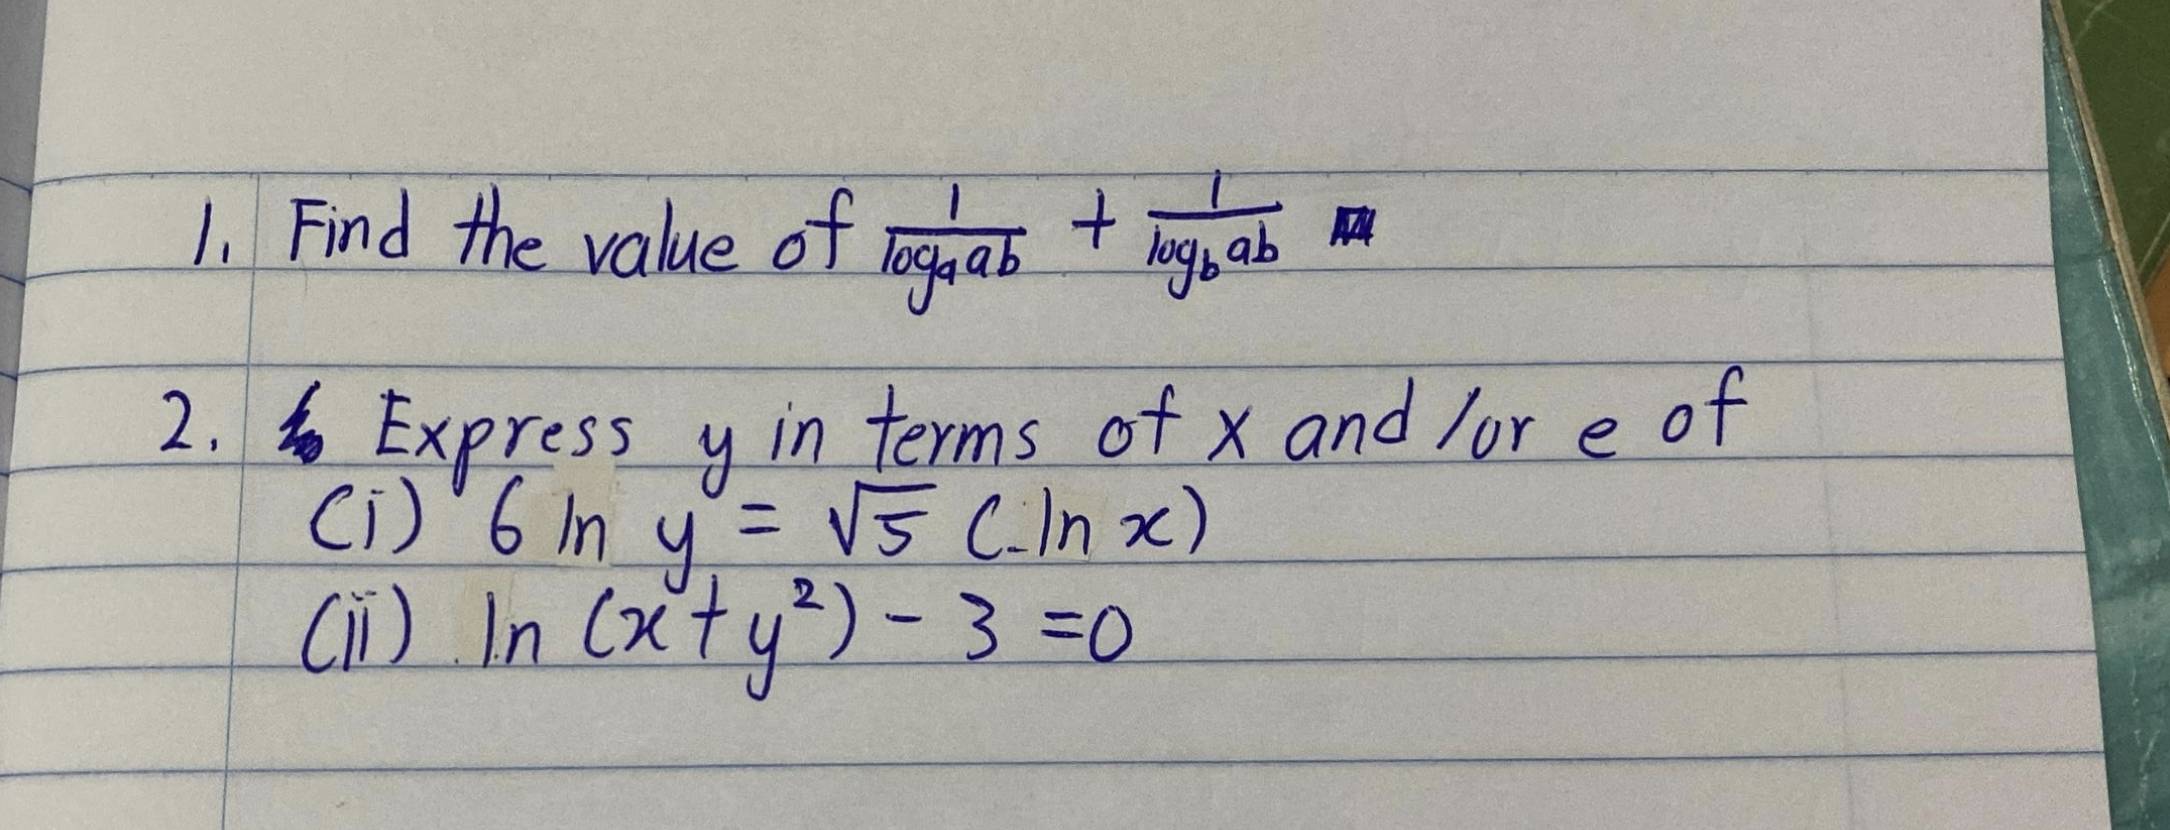 1. Find the value of 1/logₐab + 1/log_b ab
2. Express y in terms of x and/or e of
(i) 6 ln y = √5 (-ln x)
(ii) ln (x+y²) - 3 = 0